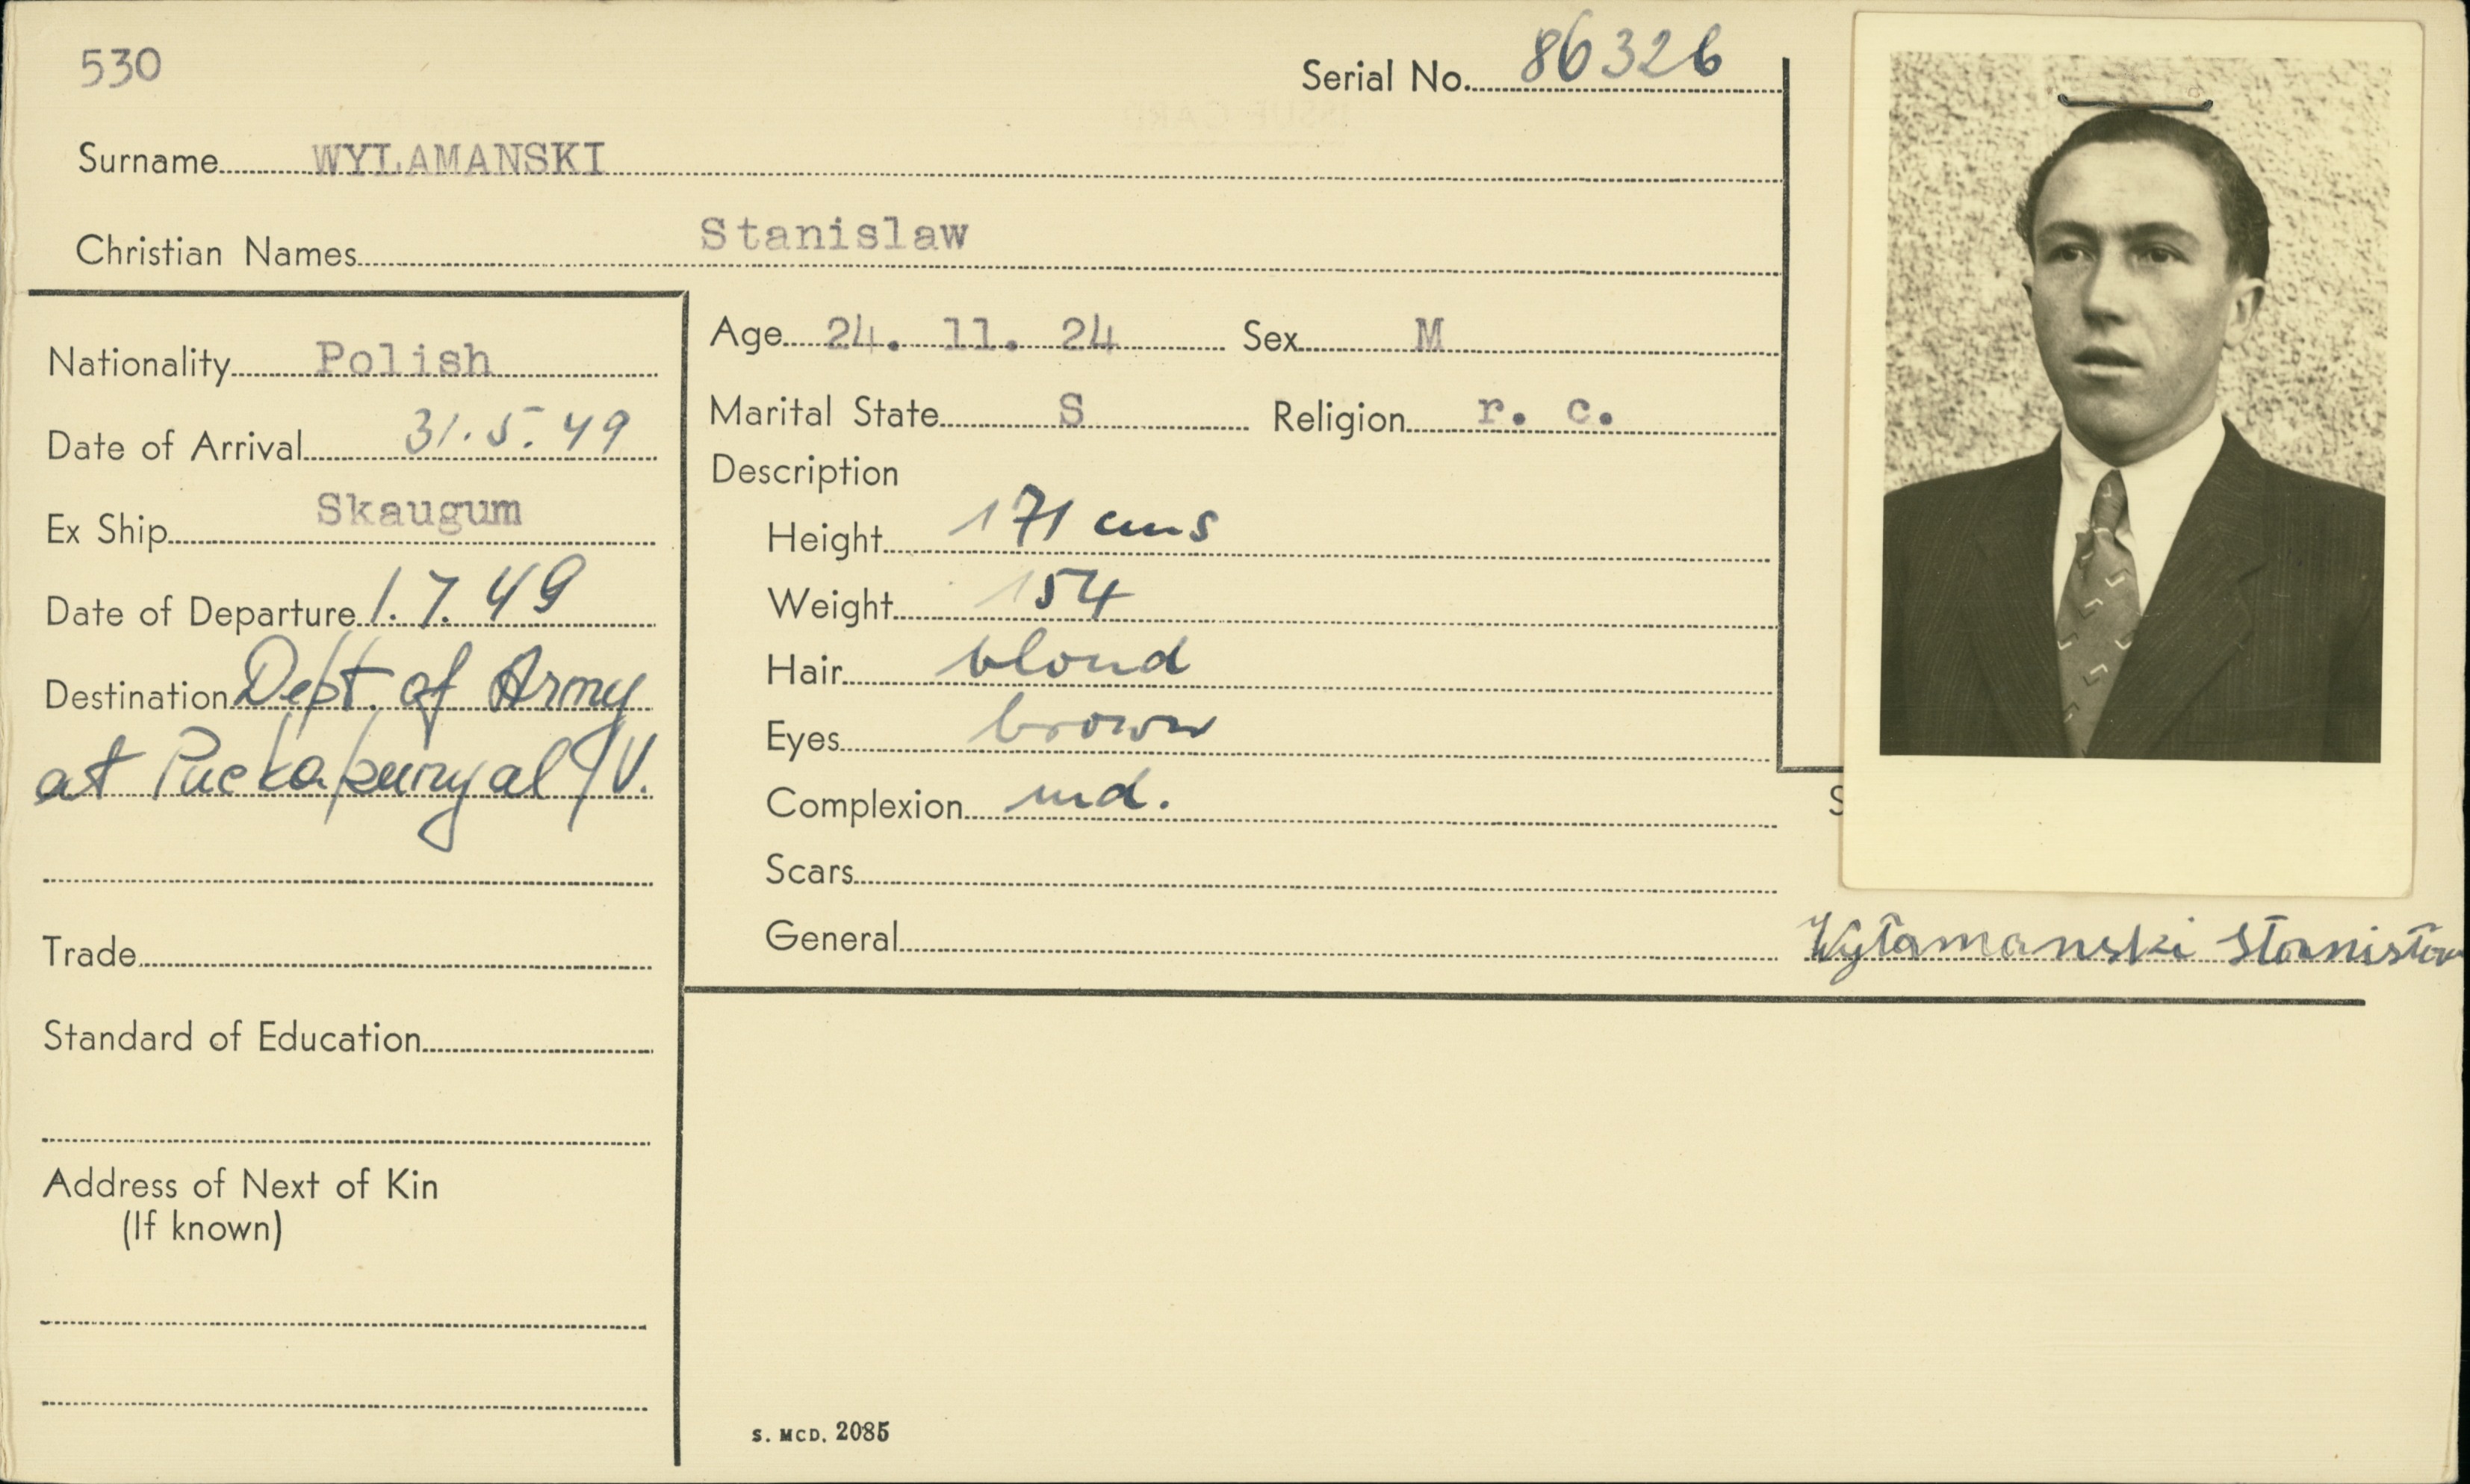 530
Serial No. 86326
Surname WYLAMANSKI
Christian Names Stanislaw
Nationality Polish
Date of Arrival 31.5.49
Ex Ship Skaugum
Date of Departure 1.7.49
Destination Dept. of Army
at Puckapunyal /V.
Trade
Standard of Education
Address of Next of Kin
(If known)
Age 24. 11. 24 Sex M
Marital State S Religion r. c.
Description
Height 171 cms
Weight 154
Hair blond
Eyes brown
Complexion md.
Scars
General
S
Wyłamanski Stanisław
S. MCD. 2085